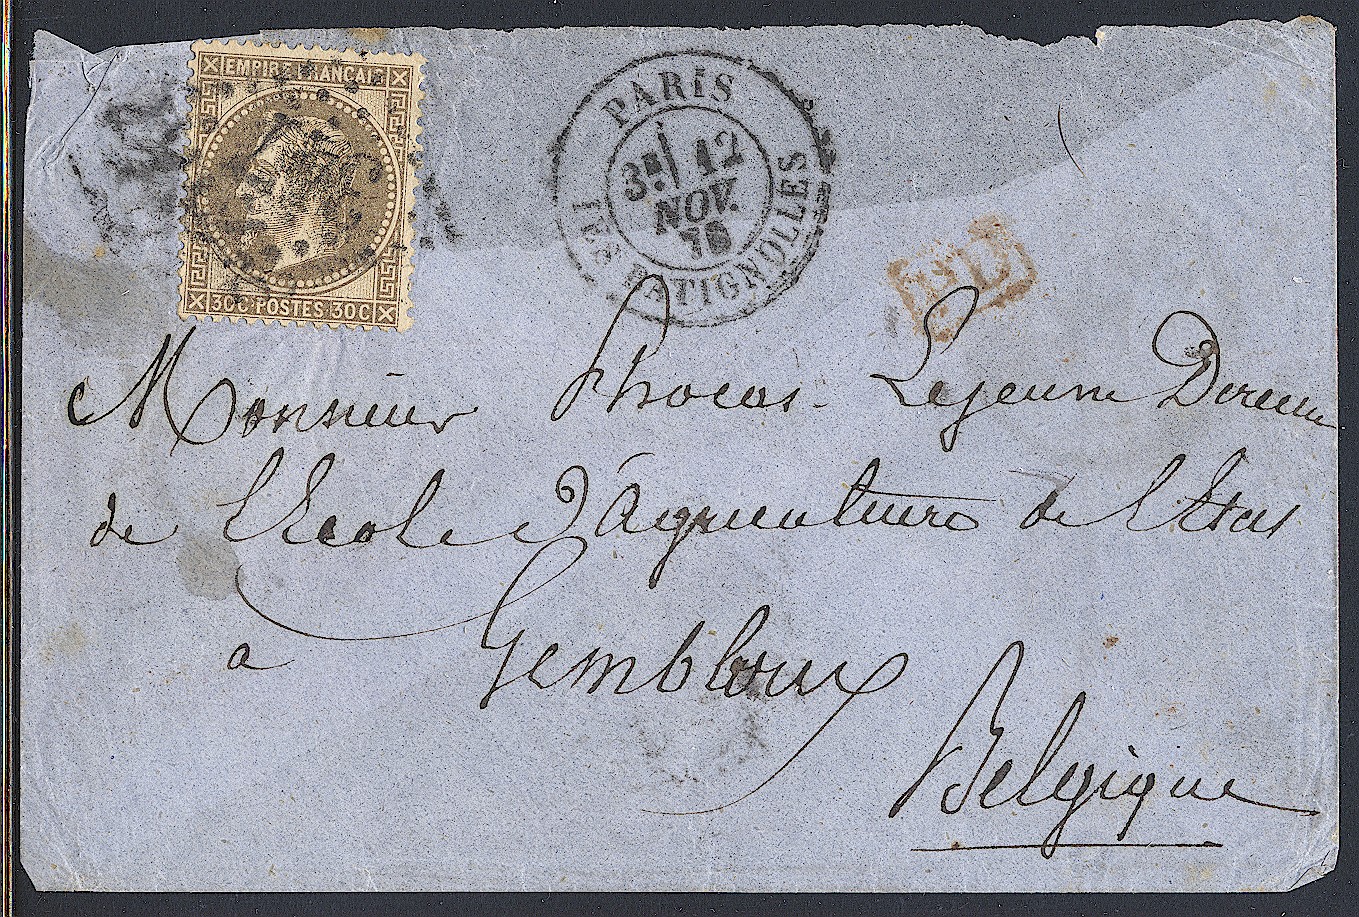 EMPIRE FRANÇAIS
30C POSTES 30C
PARIS
3E 12
NOV.
LES BATIGNOLLES
P.D.
Monsieur Phocas Lejeune Directeur
de l'Ecole d'Agriculture de l'Etat
à Gembloux
Belgique